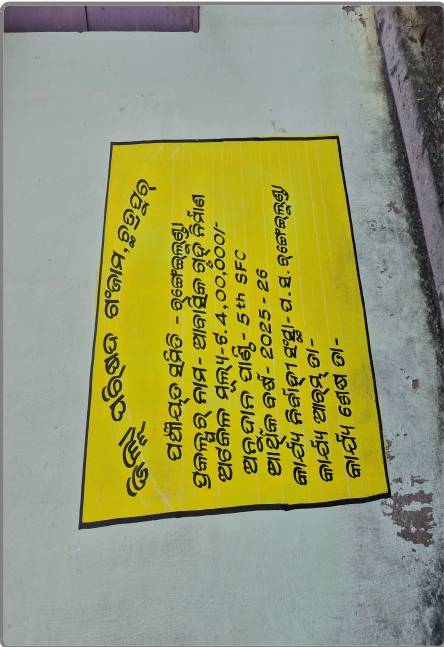 ଜିଲ୍ଲା ପରିଷଦ ଗଂଜାମ, ଛତ୍ରପୁର
ପଞ୍ଚାୟତ ସମିତି -
ପ୍ରକଳ୍ପର ନାମ- ଆବାସିକ ଗୃହ ନିର୍ମାଣ
ଅଟକଳ ମୂଲ୍ୟ-6.4,00,000/-
ଅନୁଦାନ ପାଣ୍ଠି- 5th SFC
ଆର୍ଥିକ ବର୍ଷ- 2025 - 26
କାର୍ଯ୍ୟ ନିର୍ବାହୀ ସଂସ୍ଥା- ପ. ସ.
କାର୍ଯ୍ୟ ଆରମ୍ଭ ତା-
କାର୍ଯ୍ୟ ଶେଷ ତା-